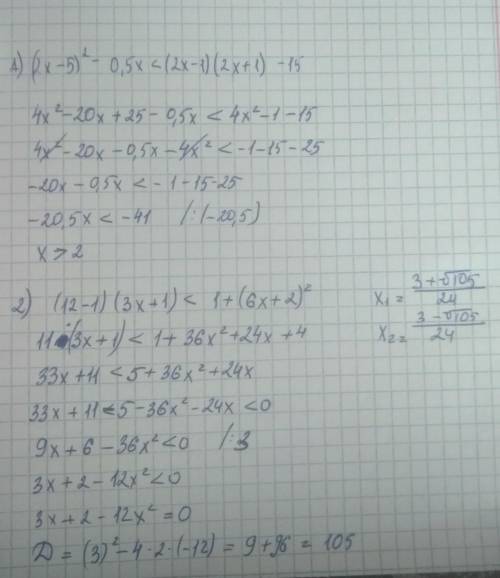 1) (2x-5)² - 0,5x < (2x-1)(2x+1) -15
4x² -20x + 25 - 0,5x < 4x² -1 -15
4x² -20x -0,5x -4x² < -1 -15 -25
-20x -0,5x < -1 -15 -25
-20,5x < -41 /:(-20,5)
x > 2
2) (12-1)(3x+1) < 1+(6x+2)²
11·(3x+1) < 1+36x²+24x+4
33x+11 < 5+36x²+24x
33x+11 -5 -36x² -24x < 0
9x+6 -36x² < 0 /:3
3x+2 -12x² < 0
3x+2 -12x² = 0
D = (3)² -4·2·(-12) = 9+96 = 105
x₁ = (3+√105)/24
x₂ = (3-√105)/24